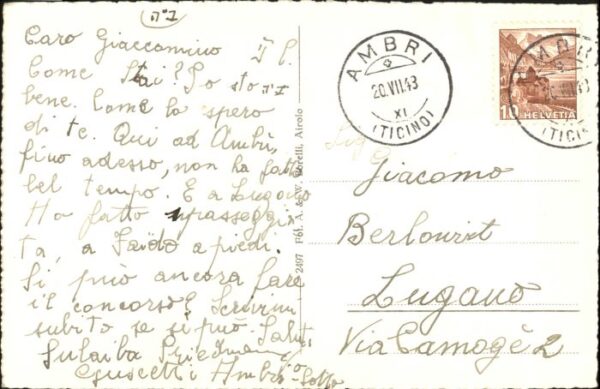 ב"ה
Caro Giaccomino
Come Stai? Io sto ב"ה
bene. Come lo spero
di te. Qui ad Ambrì,
fino adesso, non ha fatto
bel tempo. E a Lugano
Ho fatto passeggia
ta, a Faido a piedi.
Si può ancora fare
il concorso? Scrivimi
subito se si può. Saluti
Sulaiba Friedmann
Guscetti Ambrì-Sotto
2497 Fot. A. & W. Borelli, Airolo
AMBRI
20.VII.43
XI
(TICINO)
10 HELVETIA
AMBRI
(TICINO)
Sig
Giacomo
Berlowitz
Lugano
Via Camogè 2